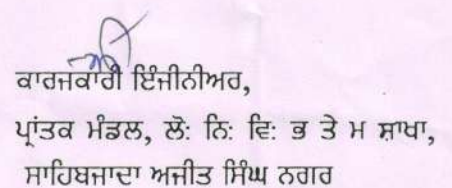 ਕਾਰਜਕਾਰੀ ਇੰਜੀਨੀਅਰ,
ਪ੍ਰਾਂਤਕ ਮੰਡਲ, ਲੋ: ਨਿ: ਵਿ: ਭ ਤੇ ਮ ਸ਼ਾਖਾ,
ਸਾਹਿਬਜਾਦਾ ਅਜੀਤ ਸਿੰਘ ਨਗਰ